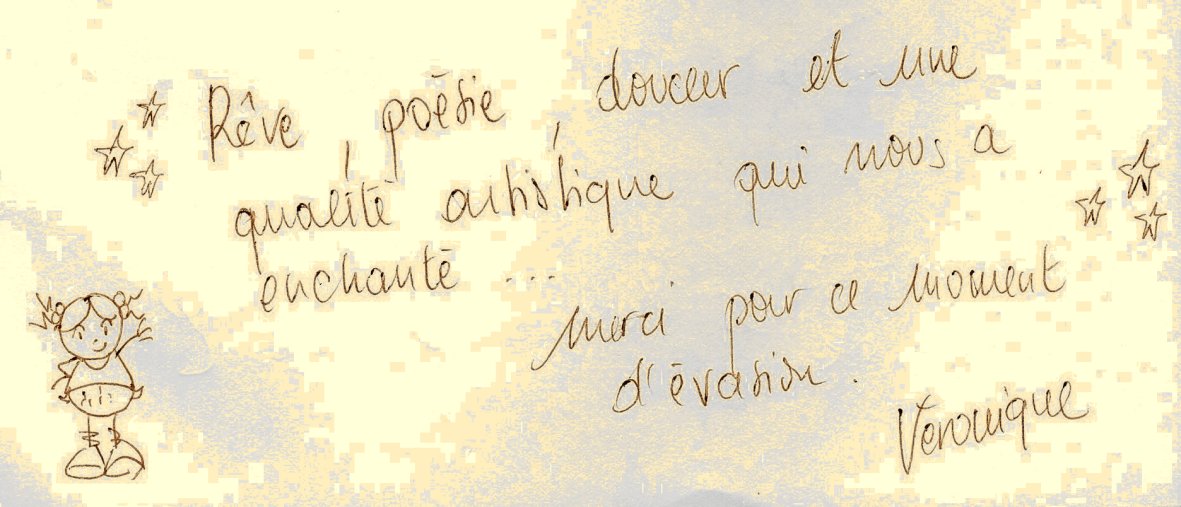 Rêve, poésie, douceur et une
qualité artistique qui nous a
enchanté ...
Merci pour ce moment
d'évasion.
Véronique